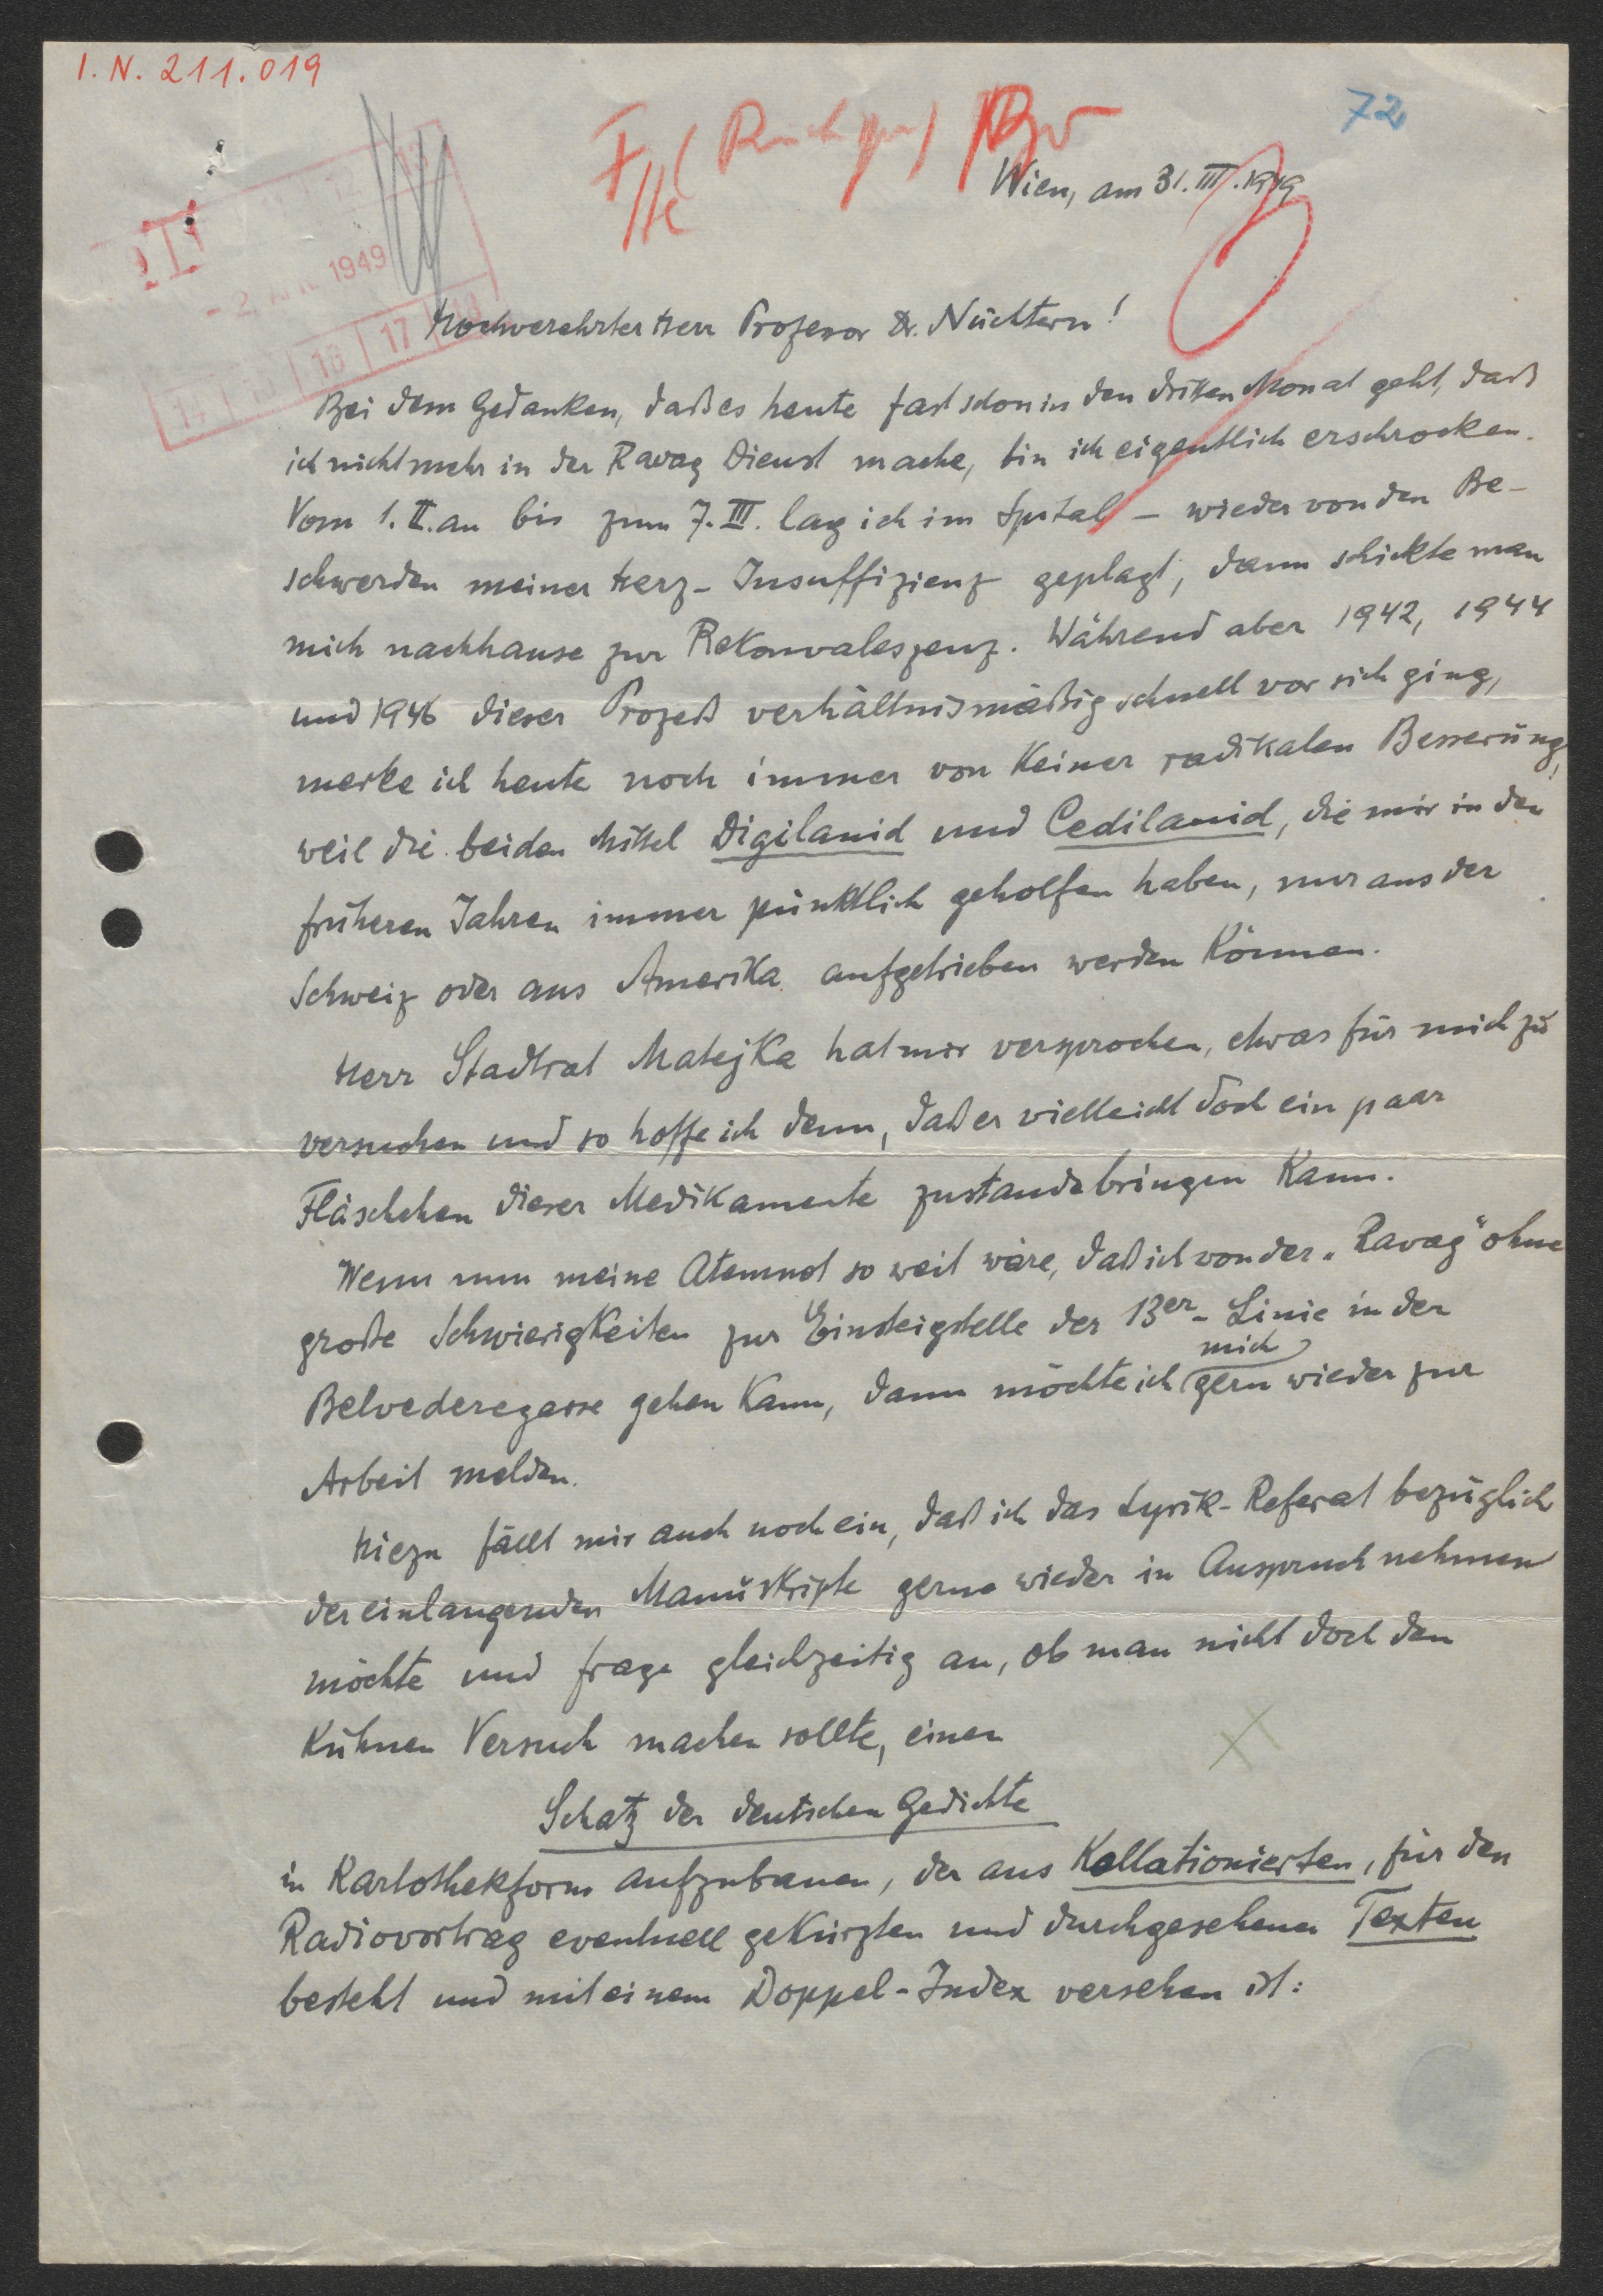 I. N. 211.019
72
Wien, am 31. III. 1949
- 2. 1949
16 17
Hochverehrter Herr Professor Dr. Nüchtern!
Bei dem Gedanken, daß es heute fast schon in den dritten Monat geht, daß
ich nicht mehr in der Ravag Dienst mache, bin ich eigentlich erschrocken.
Vom 1. II. an bis zum 7. III. lag ich im Spital – wieder von den Be-
schwerden meiner Herz-Insuffizienz geplagt, dann schickte man
mich nachhause zur Rekonvaleszenz. Während aber 1942, 1944
und 1946 dieser Prozeß verhältnismäßig schnell vor sich ging,
merke ich heute noch immer von keiner radikalen Besserung,
weil die beiden Mittel Digilanid und Cedilanid, die mir in den
früheren Jahren immer pünktlich geholfen haben, nur aus der
Schweiz oder aus Amerika aufgetrieben werden können.
Herr Stadtrat Matejka hat mir versprochen, etwas für mich zu
versuchen und so hoffe ich denn, daß er vielleicht doch ein paar
Fläschchen dieser Medikamente zustandebringen kann.
Wenn nun meine Atemnot so weit wäre, daß ich von der „Ravag" ohne
große Schwierigkeiten zur Einsteigstelle der 13er-Linie in der
Belvederegasse gehen kann, dann möchte ich mich gern wieder zur
Arbeit melden.
Hiezu fällt mir auch noch ein, daß ich das Lyrik-Referat bezüglich
der einlangenden Manuskripte gerne wieder in Anspruch nehmen
möchte und frage gleichzeitig an, ob man nicht doch den
kühnen Versuch machen sollte, einen
Schatz der deutschen Gedichte
in Kartothekform aufzubauen, der aus Kollationierten, für den
Radiovortrag eventuell gekürzten und durchgesehenen Texten
besteht und mit einem Doppel-Index versehen ist: